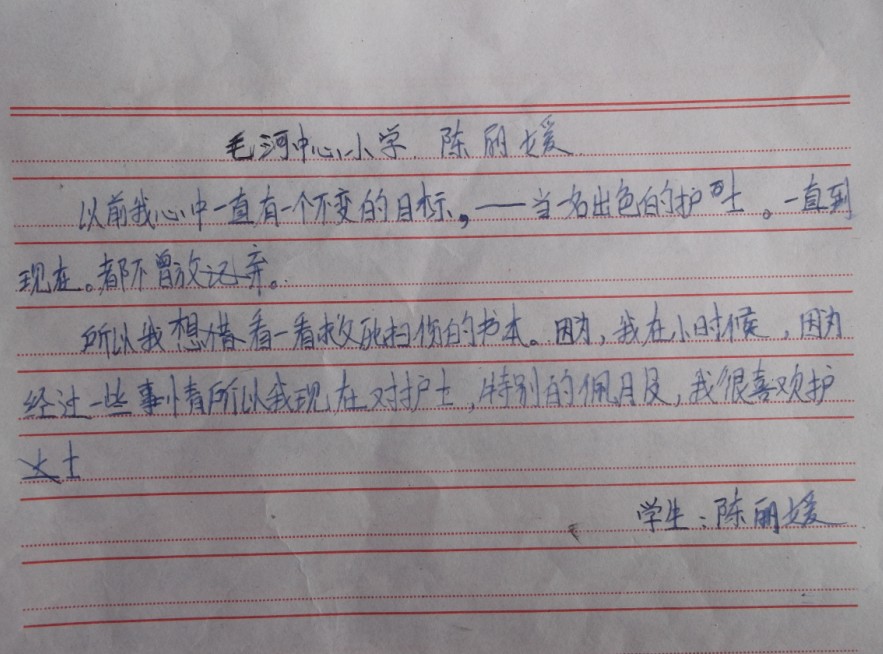 毛河中心小学 陈丽媛
以前我心中一直有一个不变的目标，——当一名出色的护士。一直到
现在。都不曾放弃。
所以我想借看一看救死扶伤的书本。因为，我在小时候，因为
经过一些事情所以我现在对护士，特别的佩服，我很喜欢护
士
学生：陈丽媛